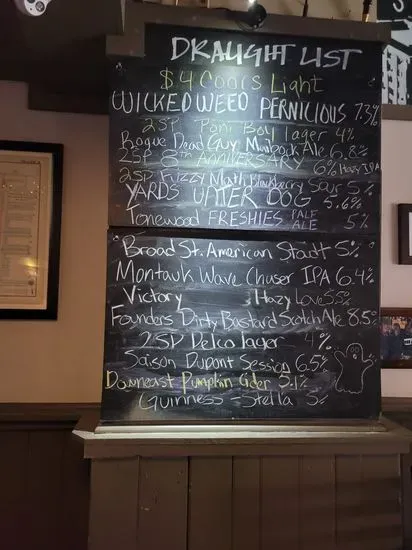 DRAUGHT LIST
$4 Coors Light
WICKED WEED PERNICIOUS 7.3%
2SP Poni Boy lager 4%
Rogue Dead Guy Maibock Ale 6.8%
2SP 8th ANNIVERSARY 6% Hazy IPA
2SP Fuzzy Math Blackberry Sour 5%
YARDS UNDER DOG 5.6%
Tonewood FRESHIES PALE ALE 5%
Broad St. American Stadt 5%
Montauk Wave Chaser IPA 6.4%
Victory Hazy Love 5.5%
Founders Dirty Bastard Scotch Ale 8.5%
2SP Delco lager 4%
Saison Dupont Session 6.5%
Downeast Pumpkin Cider 5.1%
Guinness Stella 5%